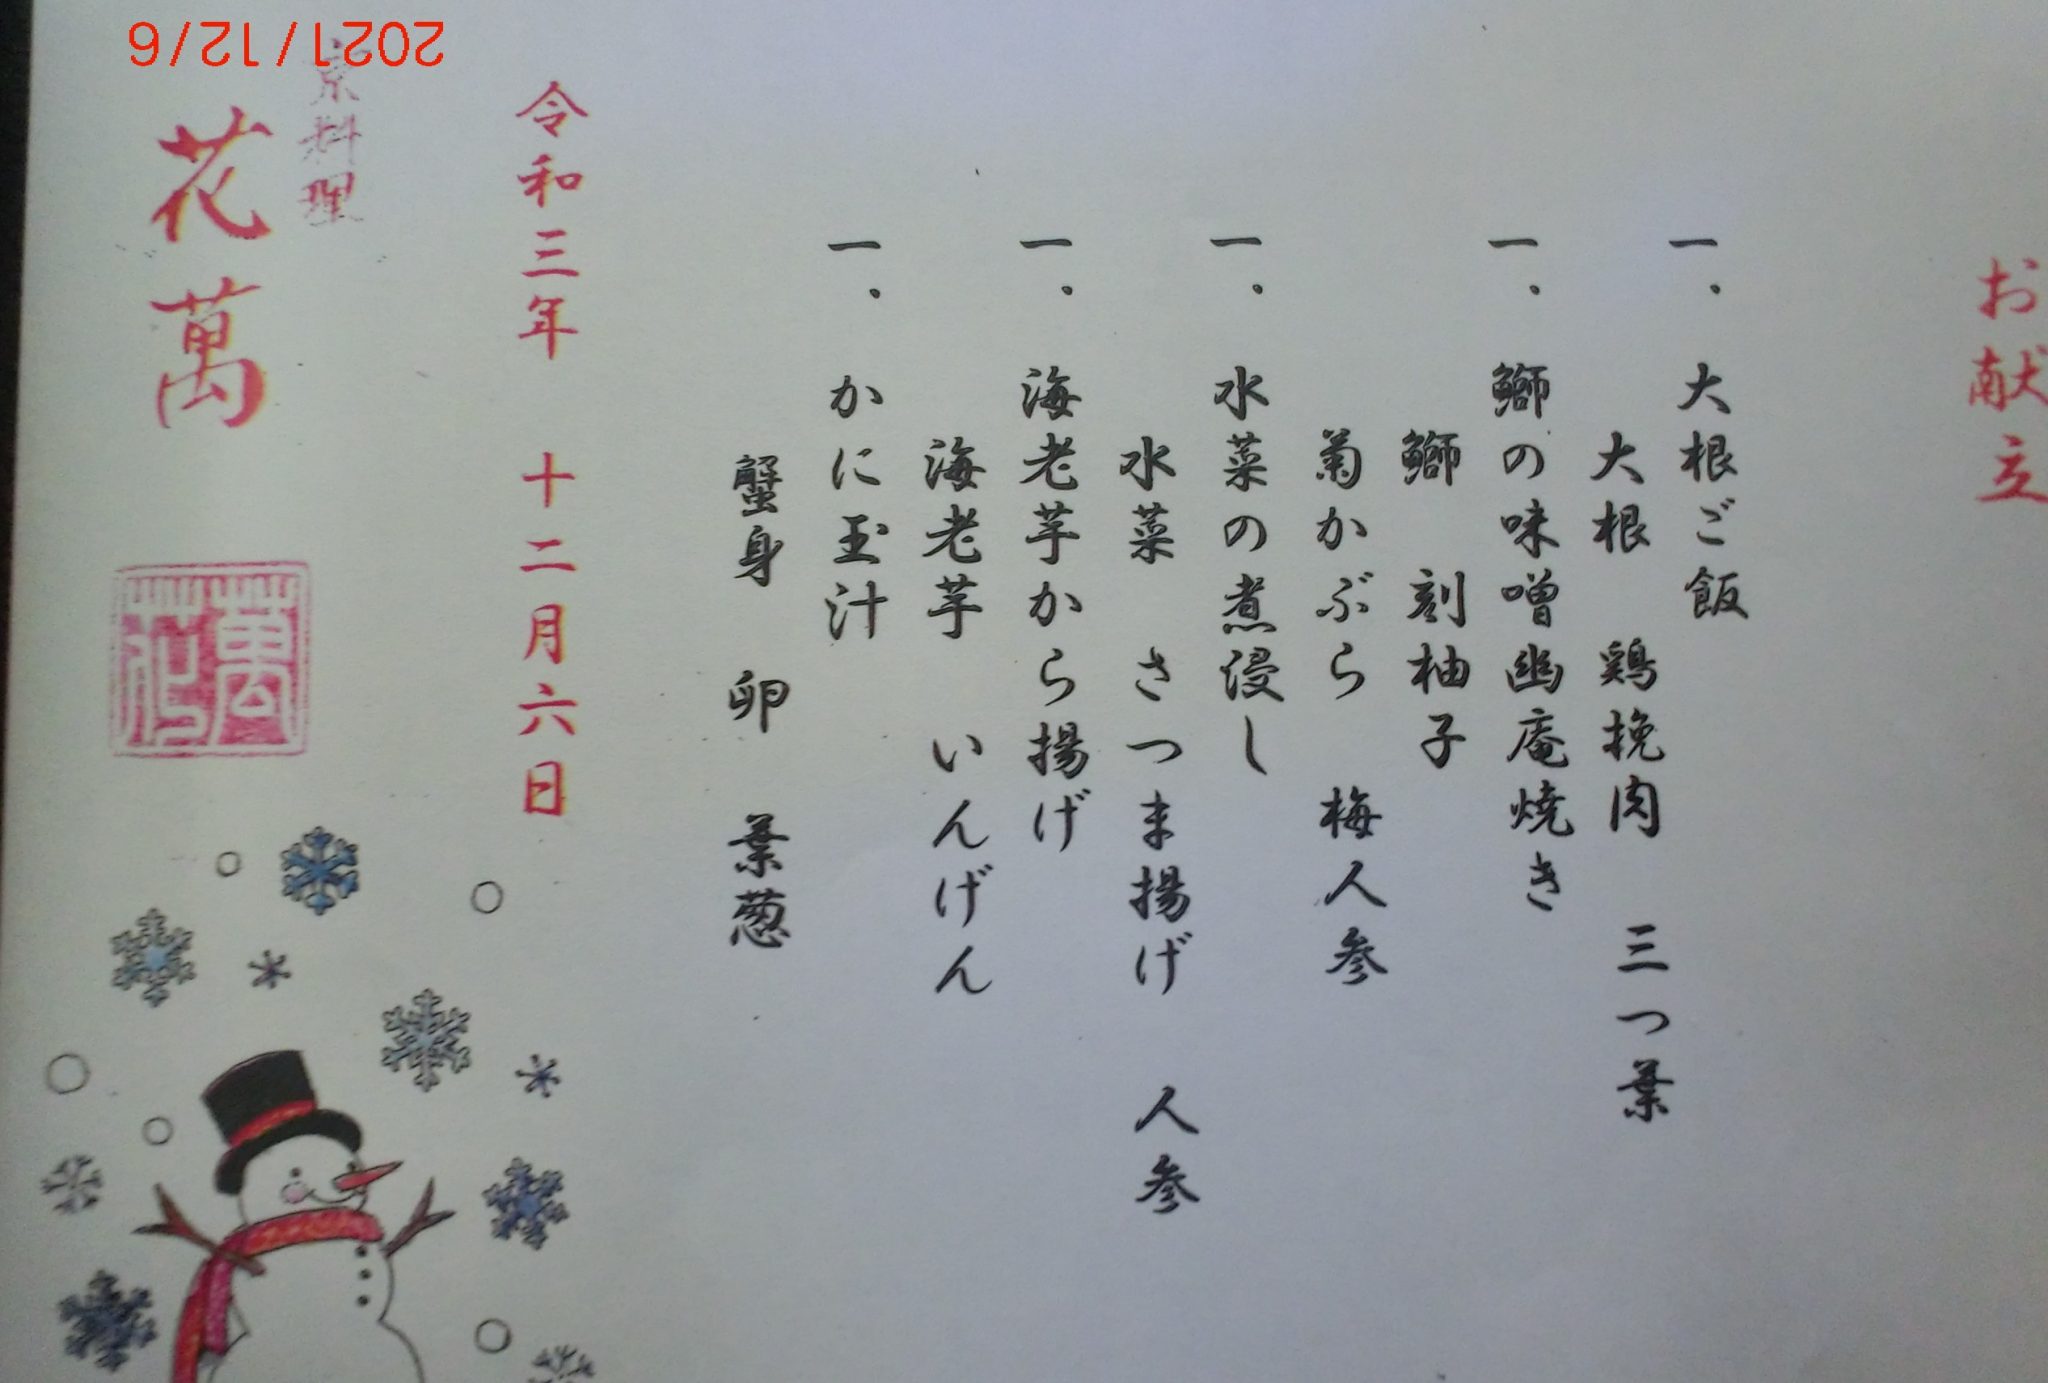 お献立
一. 大根ご飯
大根 鶏挽肉 三つ葉
一. 鰤の味噌幽庵焼き
鰤 刻柚子
菊かぶら 梅人参
一. 水菜の煮浸し
水菜 さつま揚げ 人参
一. 海老芋から揚げ
海老芋 いんげん
一. かに玉汁
蟹身 卵 葉葱
令和三年 十二月六日
京料理
花萬
萬花
2021/12/6